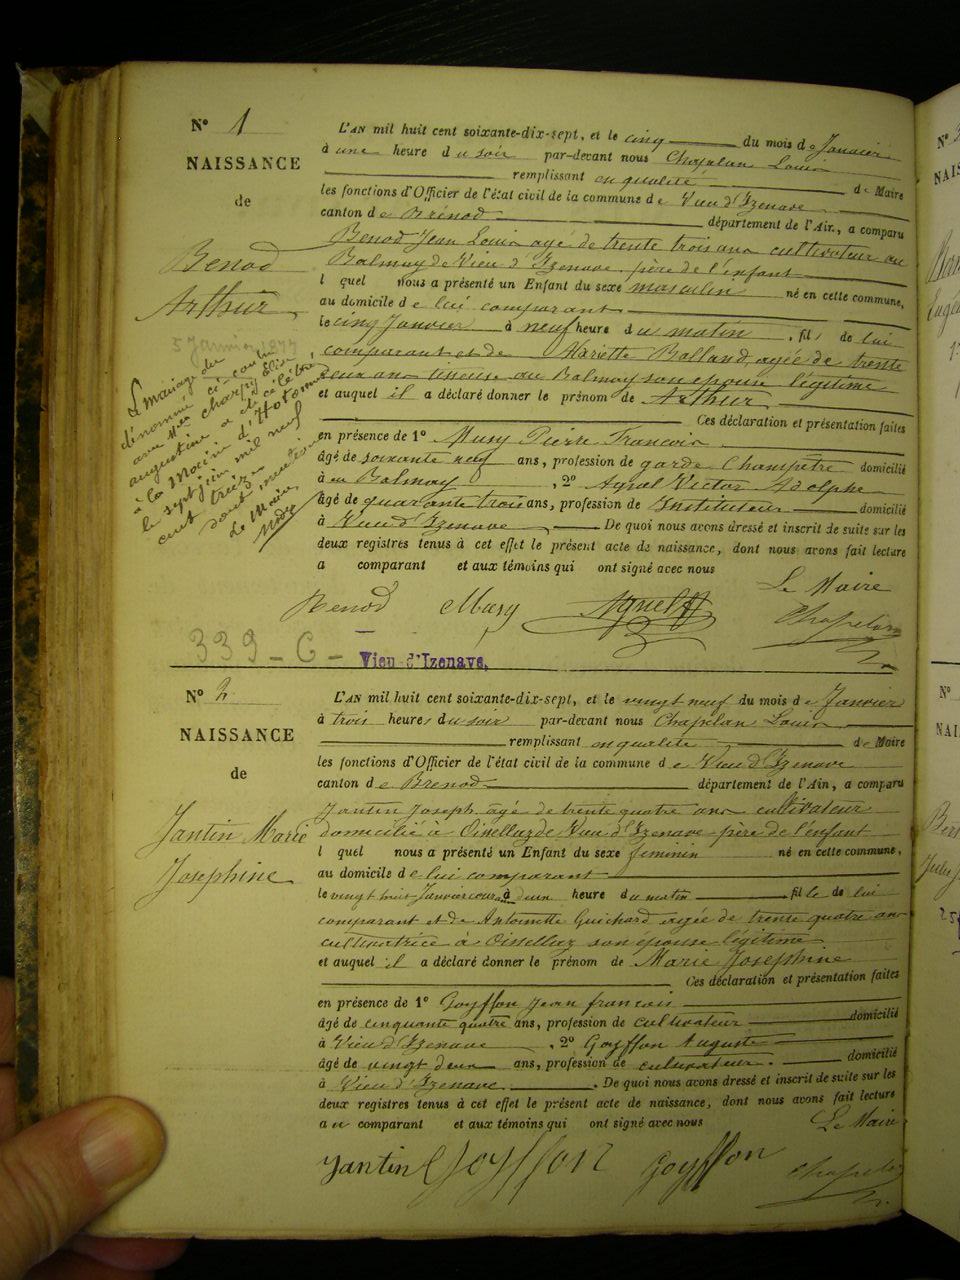 N° 1
NAISSANCE
de
Benod
Arthur
5 Janvier 1877
Le mariage du
dénommé ci-contre
avec Melle Charpy Elise
augustine a été célébré
à la Mairie d'Hotonnes
le sept juin mil neuf
cent treize
dont mention
Le Maire
L'AN mil huit cent soixante-dix-sept, et le cinq du mois de Janvier
à une heure du soir par-devant nous Chapelan Louis
remplissant en qualité de Maire
les fonctions d'Officier de l'état civil de la commune de Vieu d'Izenave
canton de Brénod département de l'Ain, a comparu
Benod Jean Louis agé de trente trois ans cultivateur au
Balmay de Vieu d'Izenave père de l'enfant
l quel nous a présenté un Enfant du sexe masculin né en cette commune,
au domicile de lui comparant
le cinq Janvier à neuf heure du matin, fils de lui
comparant et de Mariette Balland, agée de trente
deux ans tisseuse au Balmay son épouse légitime
et auquel il a déclaré donner le prénom de Arthur
Ces déclaration et présentation faites
en présence de 1° Musy Pierre François
âgé de soixante neuf ans, profession de garde Champêtre domicilié
à au Balmay, 2° Aynel Victor Adolphe
âgé de quarante trois ans, profession de Instituteur domicilié
à Vieu d'Izenave. De quoi nous avons dressé et inscrit de suite sur les
deux registres tenus à cet effet le présent acte de naissance, dont nous avons fait lecture
a comparant et aux témoins qui ont signé avec nous
Le Maire
Benod Musy Aynel Chapelan
339 - G - Vieu-d'Izenave,
N° 2
NAISSANCE
de
Jantin Marie
Josephine
L'AN mil huit cent soixante-dix-sept, et le vingt neuf du mois de Janvier
à trois heures du soir par-devant nous Chapelan Louis
remplissant en qualité de Maire
les fonctions d'Officier de l'état civil de la commune de Vieu d'Izenave
canton de Brenod département de l'Ain, a comparu
Jantin Joseph agé de trente quatre ans cultivateur
domicilié à Oisellaz de Vieu d'Izenave père de l'enfant
l quel nous a présenté un Enfant du sexe féminin né en cette commune,
au domicile de lui comparant
le vingt huit Janvier courant à d'une heure du matin fille de lui
comparant et de Antoinette Guichard agée de trente quatre ans
cultivatrice à Oisellaz son épouse légitime
et auquel il a déclaré donner le prénom de Marie Josephine
Ces déclaration et présentation faites
en présence de 1° Goyffon Jean françois
âgé de cinquante quatre ans, profession de cultivateur domicilié
à Vieu d'Izenave, 2° Goyffon Auguste
âgé de vingt deux ans, profession de cultivateur domicilié
à Vieu d'Izenave. De quoi nous avons dressé et inscrit de suite sur les
deux registres tenus à cet effet le présent acte de naissance, dont nous avons fait lecture
au comparant et aux témoins qui ont signé avec nous Le Maire
Jantin Goyffon Goyffon Chapelan